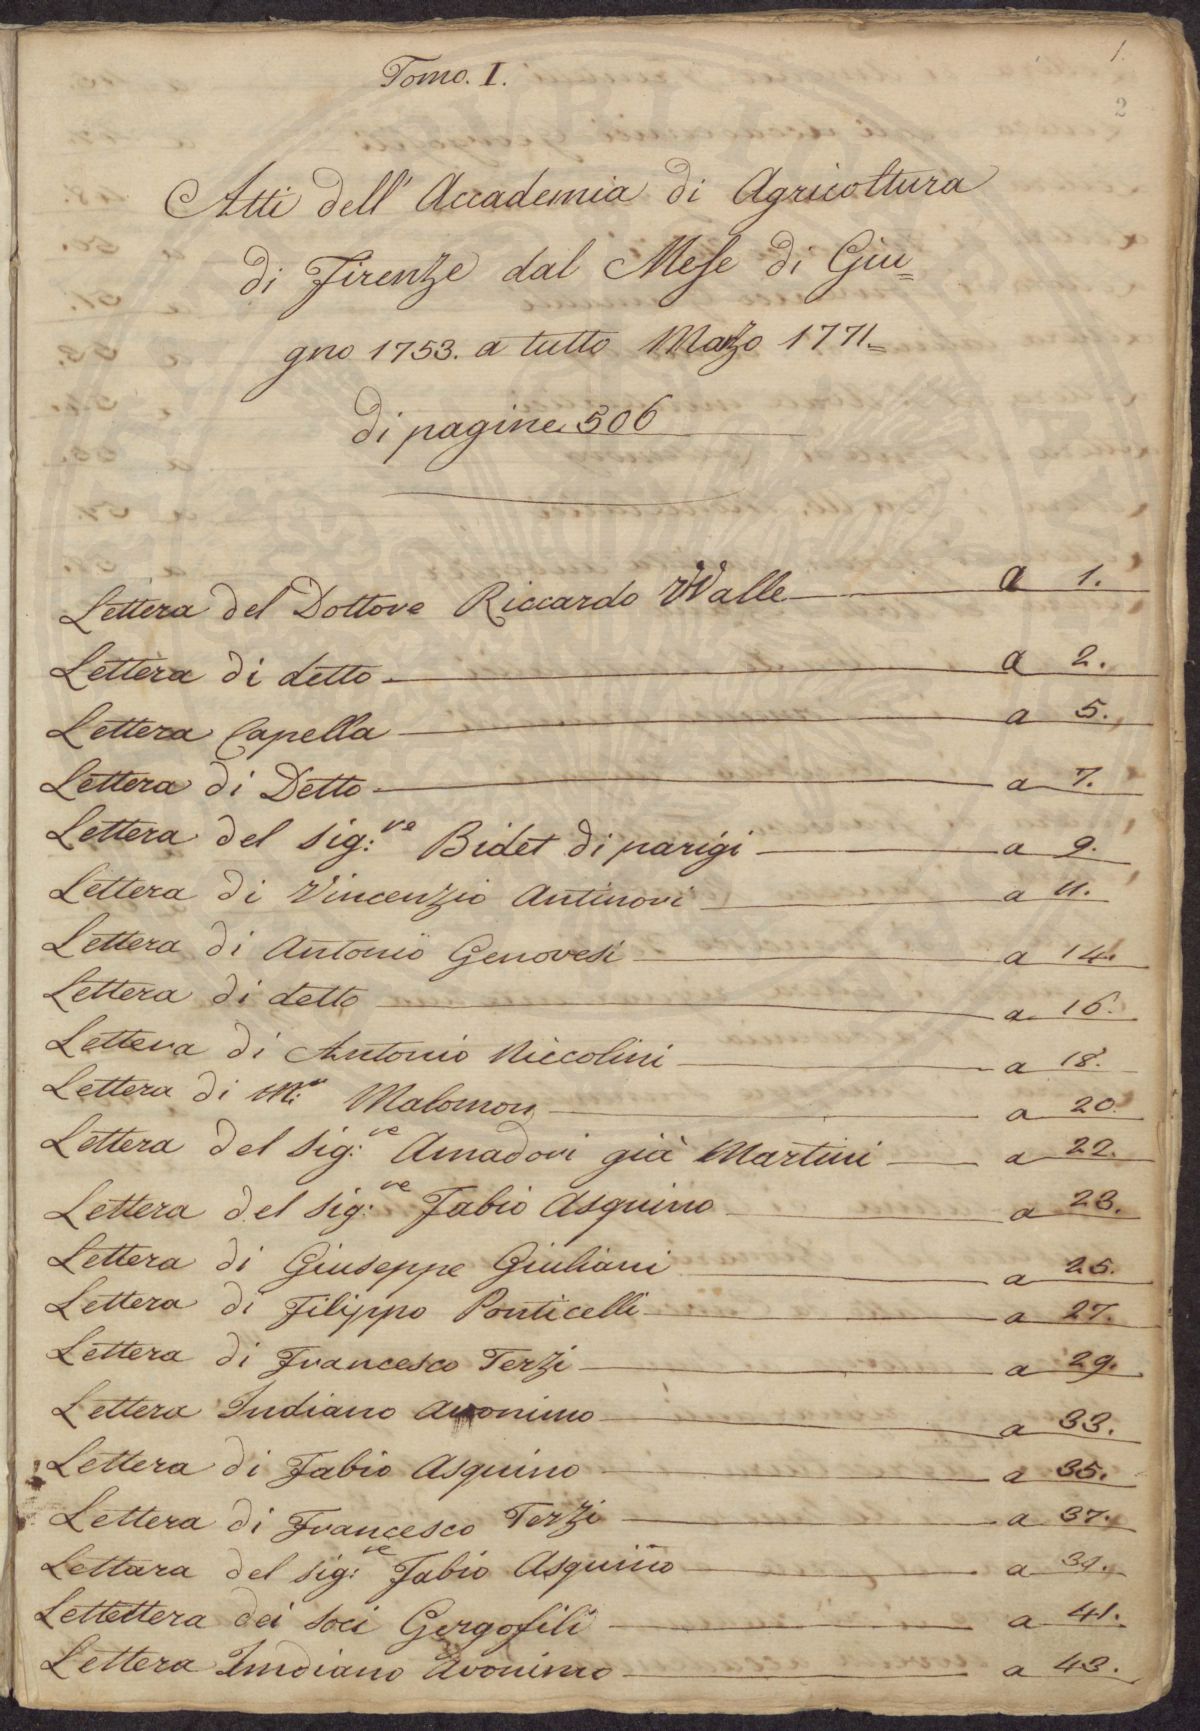 1.
2
Tomo. I.
Atti dell' Accademia di Agricoltura
di Firenze dal Mese di Giu=
gno 1753. a tutto Marzo 1771.=
di pagine 506
Lettera del Dottore Riccardo Walle a 1.
Lettera di detto a 2.
Lettera Capella a 5.
Lettera di Detto a 7.
Lettera del sig:re Bidet di parigi a 9.
Lettera di Vincenzio Antinori a 11.
Lettera di Antonio Genovesi a 14.
Lettera di detto a 16.
Lettera di Antonio Niccolini a 18.
Lettera di Mr: Malomon a 20
Lettera del sig:re Amadori già Martini a 22.
Lettera del sig:re Fabio Asquino a 23.
Lettera di Giuseppe Giuliani a 25.
Lettera di Filippo Ponticelli a 27.
Lettera di Francesco Terzi a 29.
Lettera Indiano Anonimo a 33.
Lettera di Fabio Asquino a 35.
Lettera di Francesco Terzi a 37.
Lettara del sig:re Fabio Asquino a 39.
Lettettera dei soci Gergofili a 41.
Lettera Imdiano Avonimo a 43.